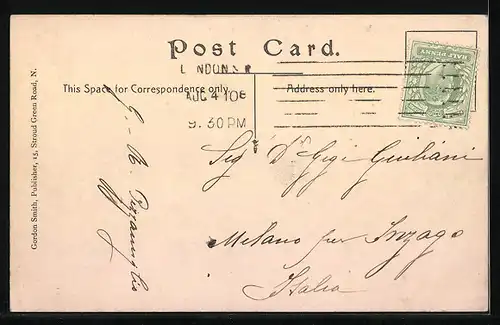 Post Card.
LONDON. N
AUG 4 10
9.30 PM
This Space for Correspondence only.
Address only here.
HALF PENNY
Gordon Smith, Publisher, 15, Stroud Green Road, N.
G. R.
Sig Gigi Giuliani
Milano per Inzago
Italia